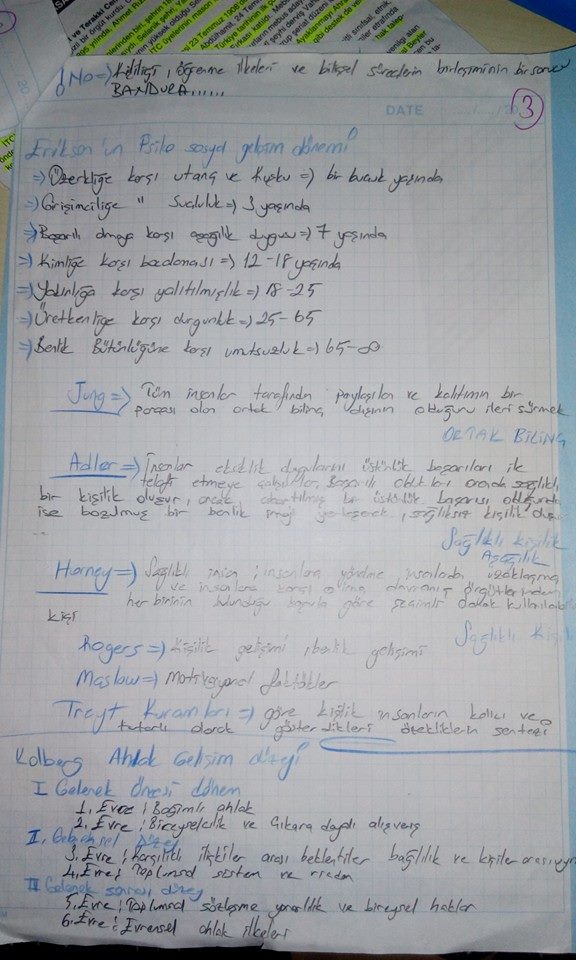 ! No => Kişiliği, öğrenme ilkeleri ve bilişsel süreçlerin birleşiminin bir sonucu
BANDURA......
DATE
3
Erikson'un Psiko sosyal gelişim dönemi
=> Özerkliğe karşı utanç ve kuşku => bir buçuk yaşında
=> Girişimciliğe " Suçluluk => 3 yaşında
=> Başarılı olmaya karşı aşağılık duygusu => 7 yaşında
=> Kimliğe karşı bocalaması => 12-18 yaşında
=> Yakınlığa karşı yalıtılmışlık => 18-25
=> Üretkenliğe karşı durgunluk => 25-65
=> Benlik Bütünlüğüne karşı umutsuzluk => 65-∞
Jung => Tüm insanlar tarafından paylaşılan ve kalıtımın bir
parçası olan ortak bilinç dışının olduğunu ileri sürmek
ORTAK BİLİNÇ
Adler => İnsanlar eksiklik duygularını üstünlük başarıları ile
telafi etmeye çalışırlar. Başarılı oldukları arada sağlıklı
bir kişilik oluşur, ancak abartılmış bir üstünlük başarısı
ise bozulmuş bir benlik imajı yerleşerek, sağlıksız kişilik
Sağlıklı kişilik
Aşağılık
Horney => Sağlıklı insan; insanlara yönelme insanlardan uzaklaşma
ve insanlara karşı olma davranış örgütlerinden
her birinin bulunduğu göre seçimli olarak
kişi
Sağlıklı Kişi
Rogers => Kişilik gelişimi, benlik gelişimi
Maslow => Motivasyonel faktörler
Treyt Kuramları => göre kişilik insanların kalıcı ve
tutarlı olarak gösterdikleri özelliklerin sentezi
Kolberg Ahlak Gelişim düzeyi
I Gelenek Öncesi dönem
1. Evre; Bağımlı ahlak
2. Evre; Bireyselcilik ve Çıkara dayalı alışveriş
II. düzey
3. Evre; karşılıklı ilişkiler arası beklentiler bağlılık ve kişiler arası
4. Evre; Toplumsal sistem ve vicdan
III Gelenek sonrası düzey
5. Evre; Toplumsal sözleşme yararlılık ve bireysel haklar
6. Evre; Evrensel ahlak ilkeleri